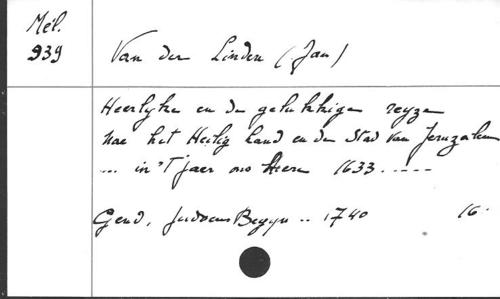 Mél.
939
Van der Linden (Jan)
Heerlyke en de gelukkige reyze
nae het Heilig Land en de Stad van Jeruzalem
... in 'T jaer ons Heere 1633 .....
Gend, Judocus Begyn .. 1740 16°